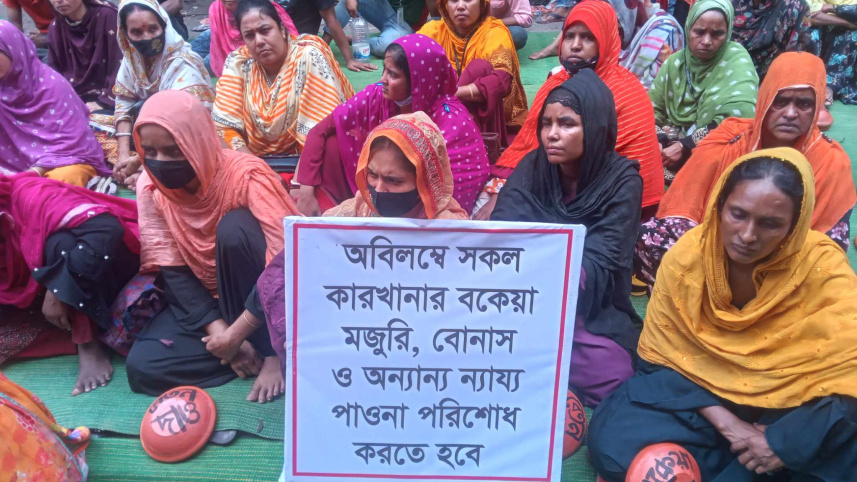 অবিলম্বে সকল
কারখানার বকেয়া
মজুরি, বোনাস
ও অন্যান্য ন্যায্য
পাওনা পরিশোধ
করতে হবে
দাও
বকেয়া